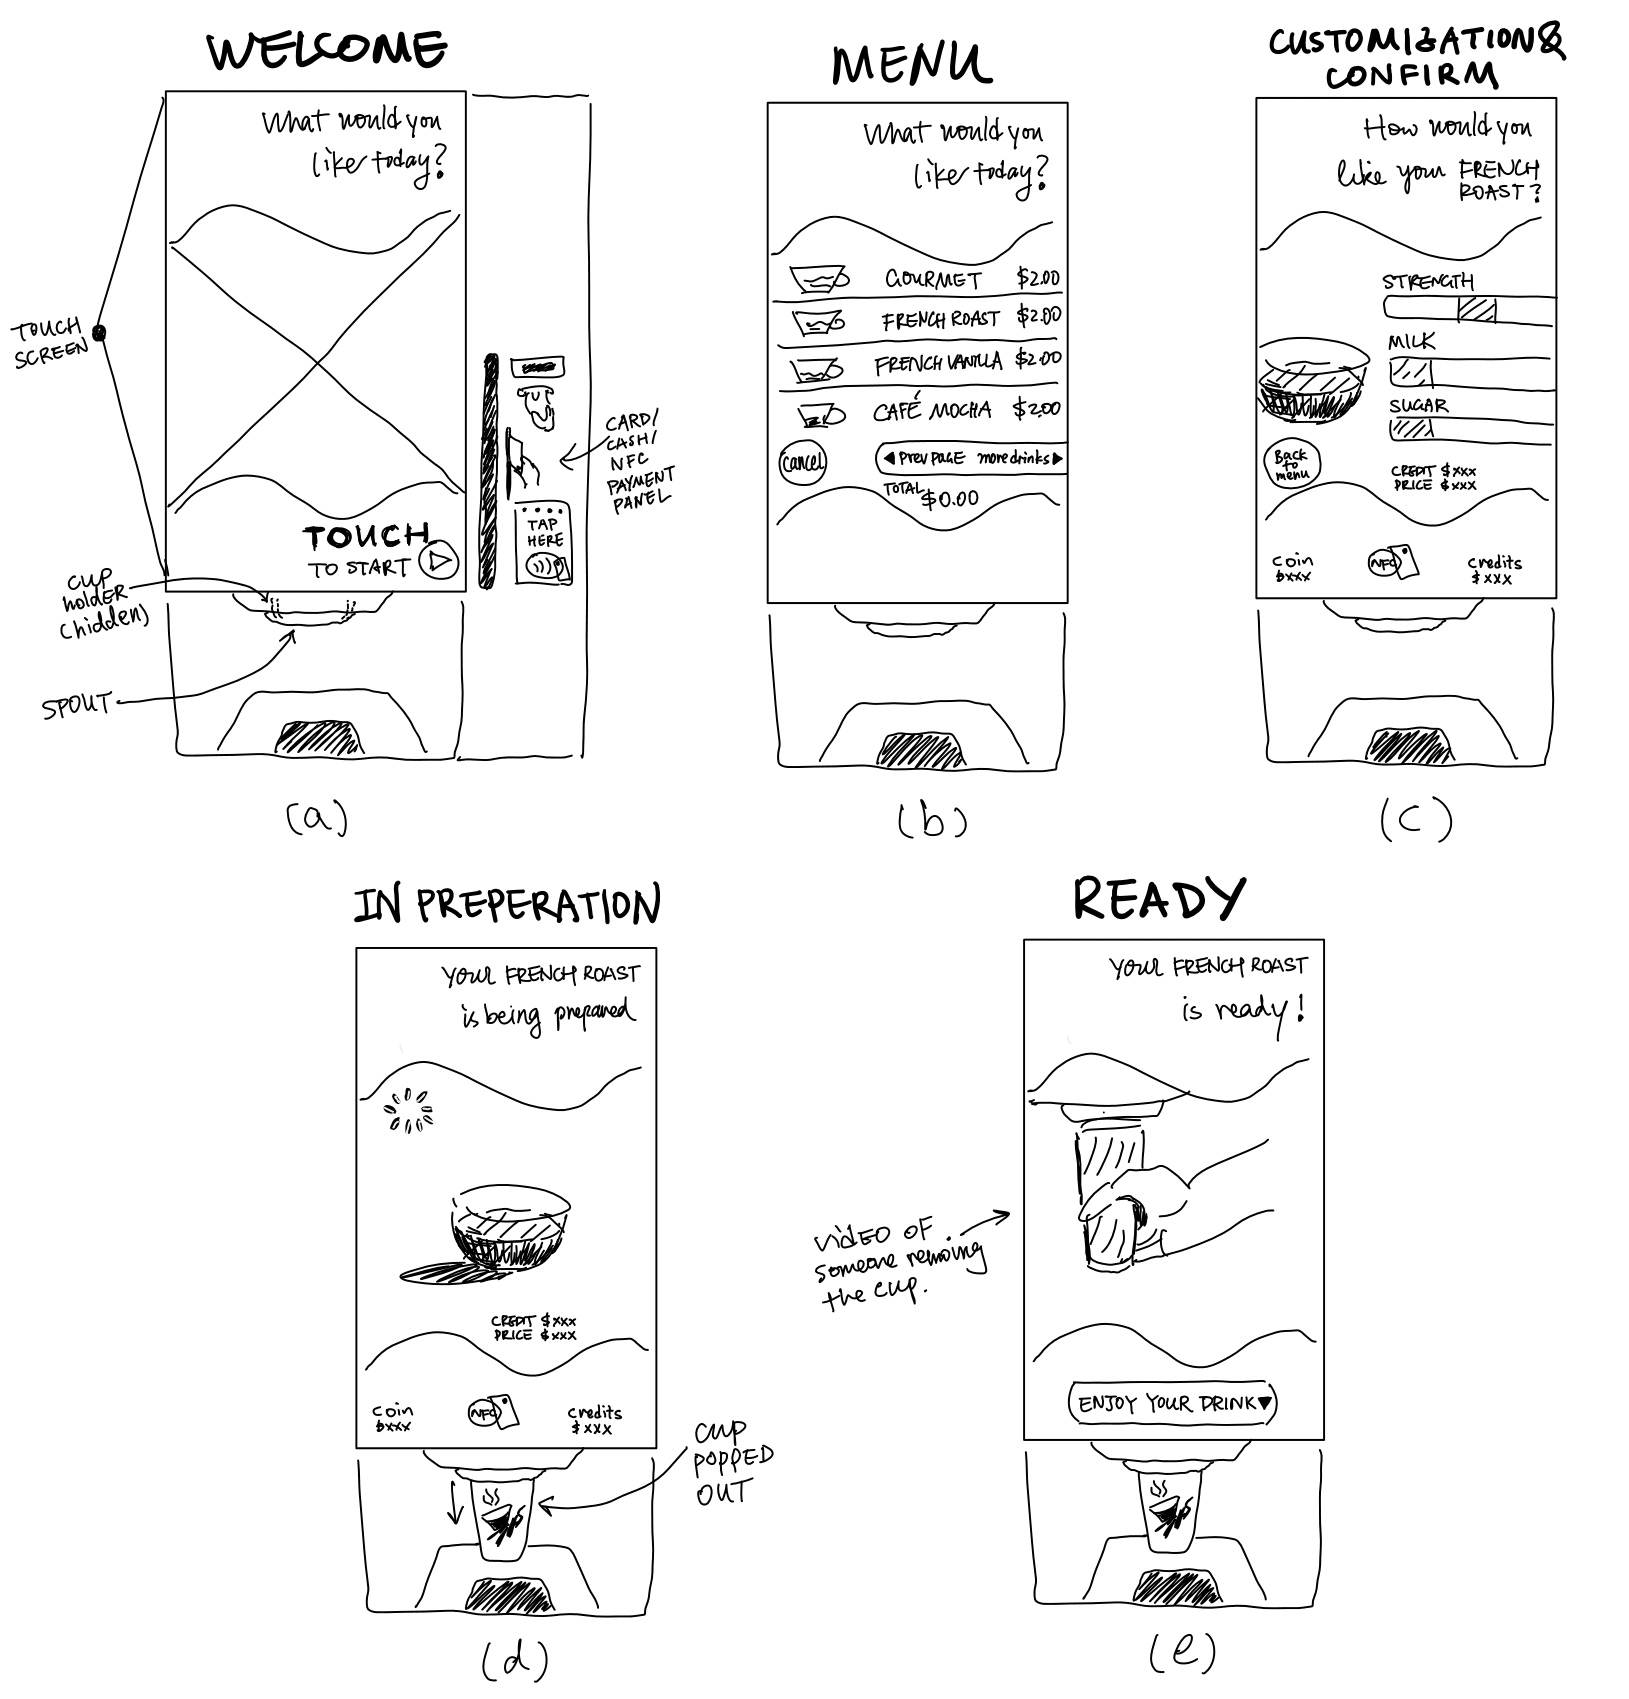 WELCOME
What would you
like today?
TOUCH
SCREEN
CARD/
CASH/
NFC
PAYMENT
PANEL
TAP
HERE
TOUCH
TO START
CUP
holDER
(hidden)
SPOUT
(a)
MENU
What would you
like today?
GOURMET $2.00
FRENCH ROAST $2.00
FRENCH VANILLA $2.00
CAFÉ MOCHA $2.00
Cancel
◀ PREV PAGE more drinks ▶
TOTAL $0.00
(b)
CUSTOMIZATION &
CONFIRM
How would you
like your FRENCH
ROAST?
STRENGTH
MILK
SUGAR
Back
to
menu
CREDIT $xxx
PRICE $xxx
Coin
$xxx
NFC
Credits
$xxx
(c)
IN PREPERATION
YOUR FRENCH ROAST
is being prepared
CREDIT $xxx
PRICE $xxx
Coin
$xxx
NFC
Credits
$xxx
CUP
POPPED
OUT
(d)
READY
YOUR FRENCH ROAST
is ready!
VIDEO OF
someone removing
the cup.
ENJOY YOUR DRINK ▼
(e)